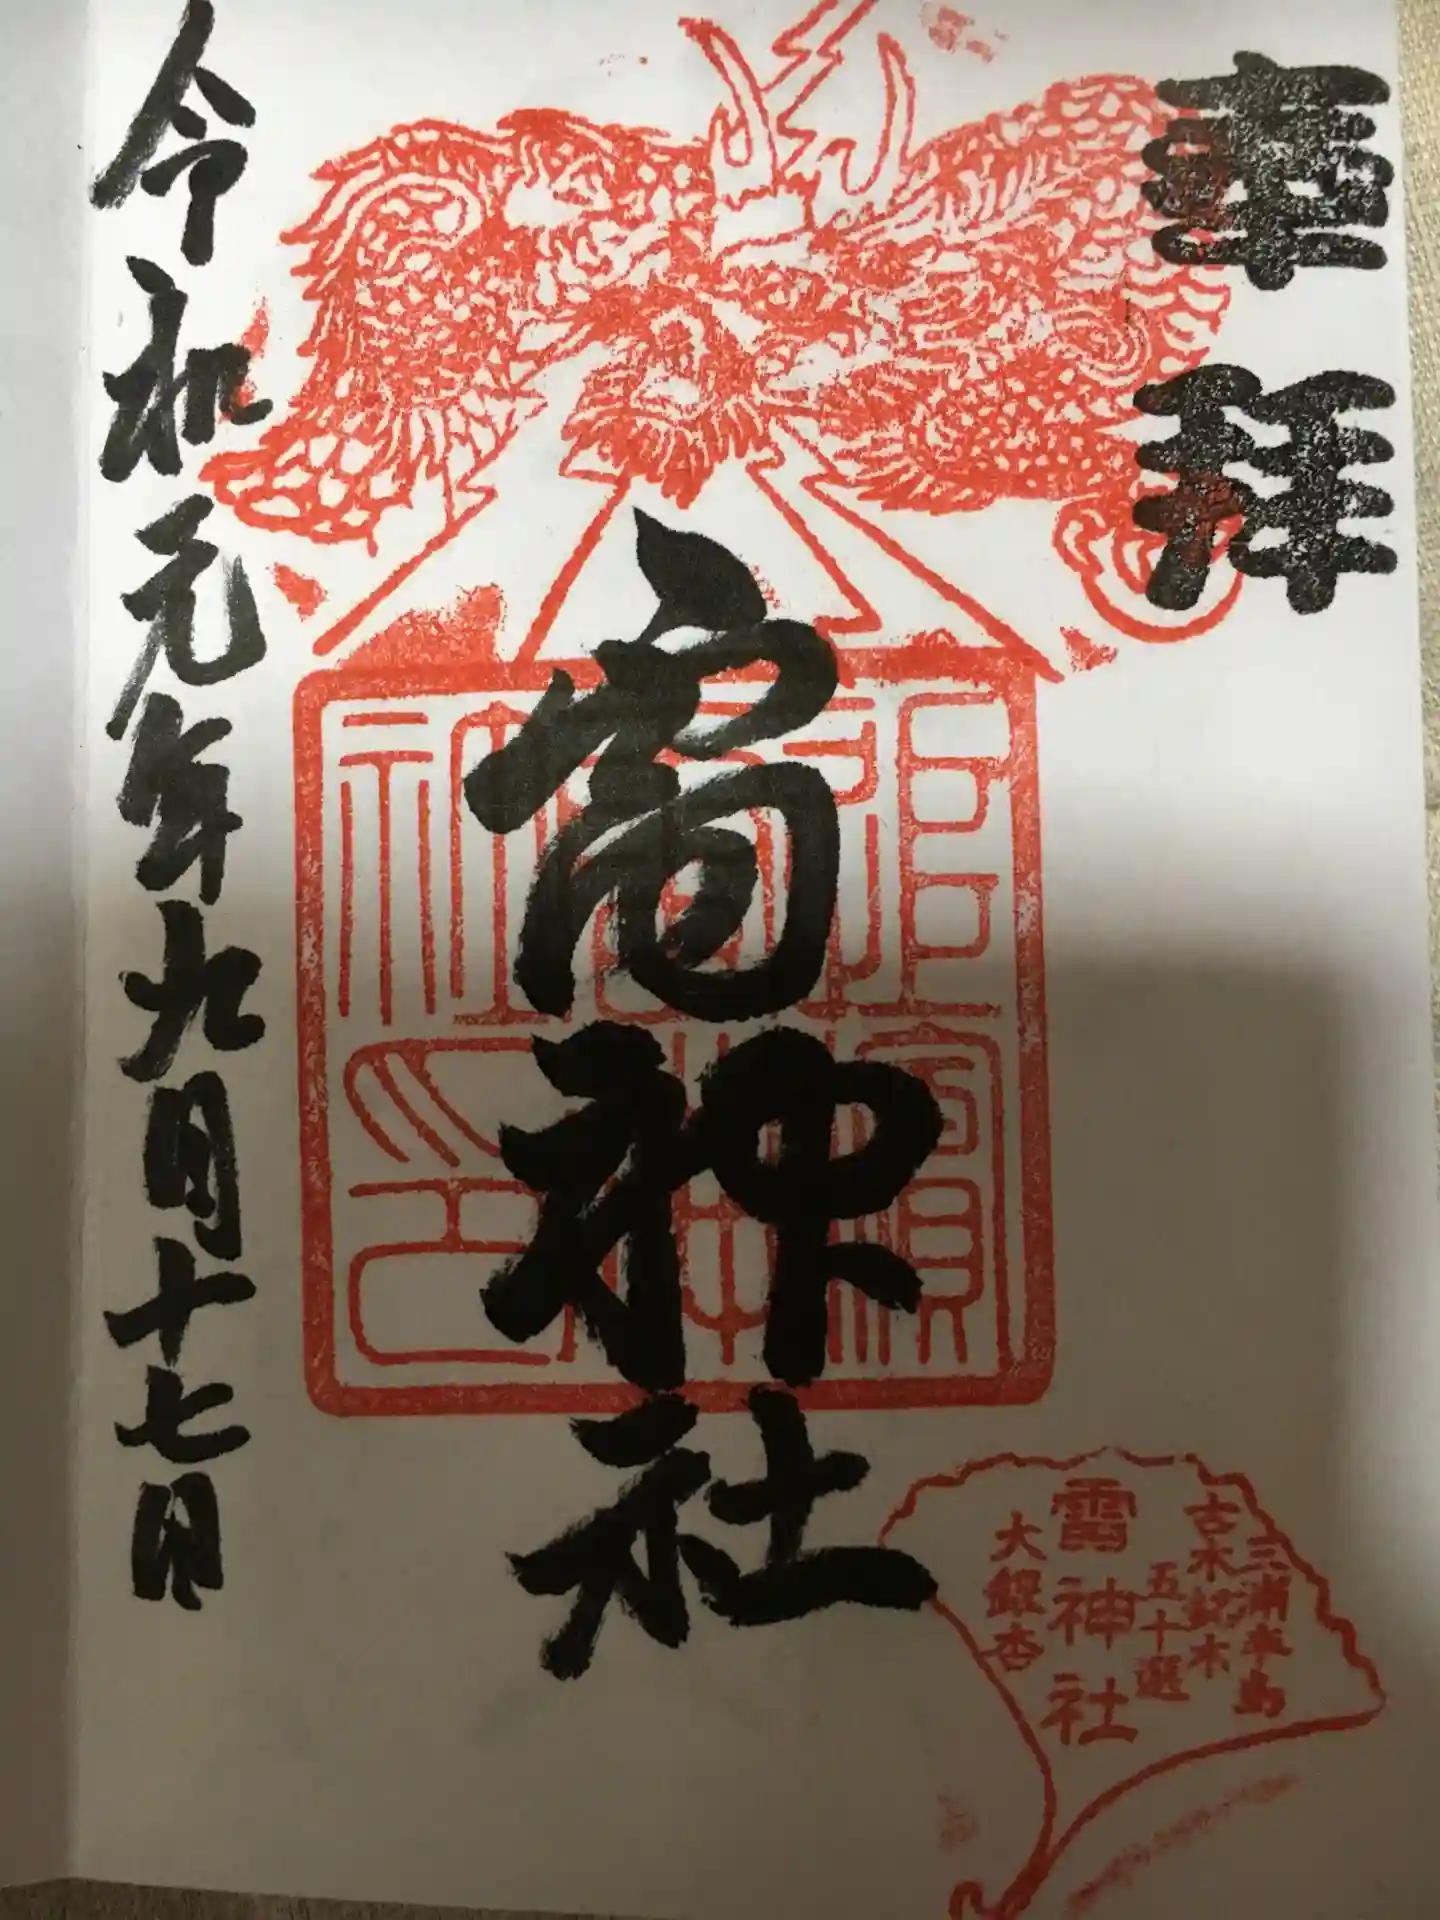 奉拝
雷神社
令和元年九月十七日
追濱
雷神
社印
三浦半島
古木銘木
五十選
雷神社
大銀杏